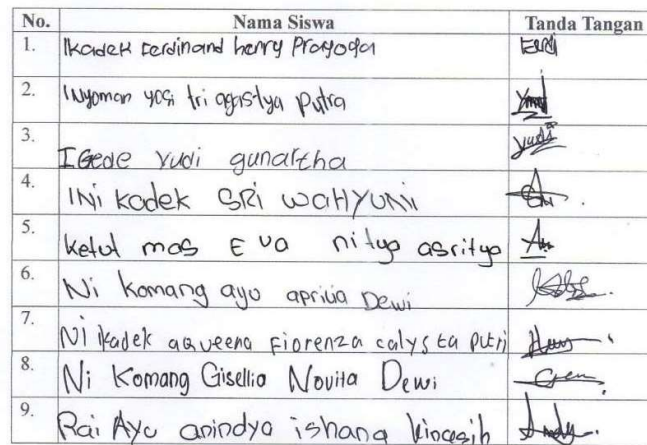 No. Nama Siswa Tanda Tangan
1. Ikadek Ferdinand henry Prayoga Ferdi
2. I Nyoman yosi tri agastya putra
3. I Gede yudi gunartha yudi
4. INi kadek SRI WAHYUNi
5. ketut mas Eva nitya asritya
6. Ni komang ayu aprilia Dewi
7. Ni kadek aqveena Fiorenza calysta putri
8. Ni Komang Gisellia Novita Dewi
9. Rai Ayu anindya ishana kinasih